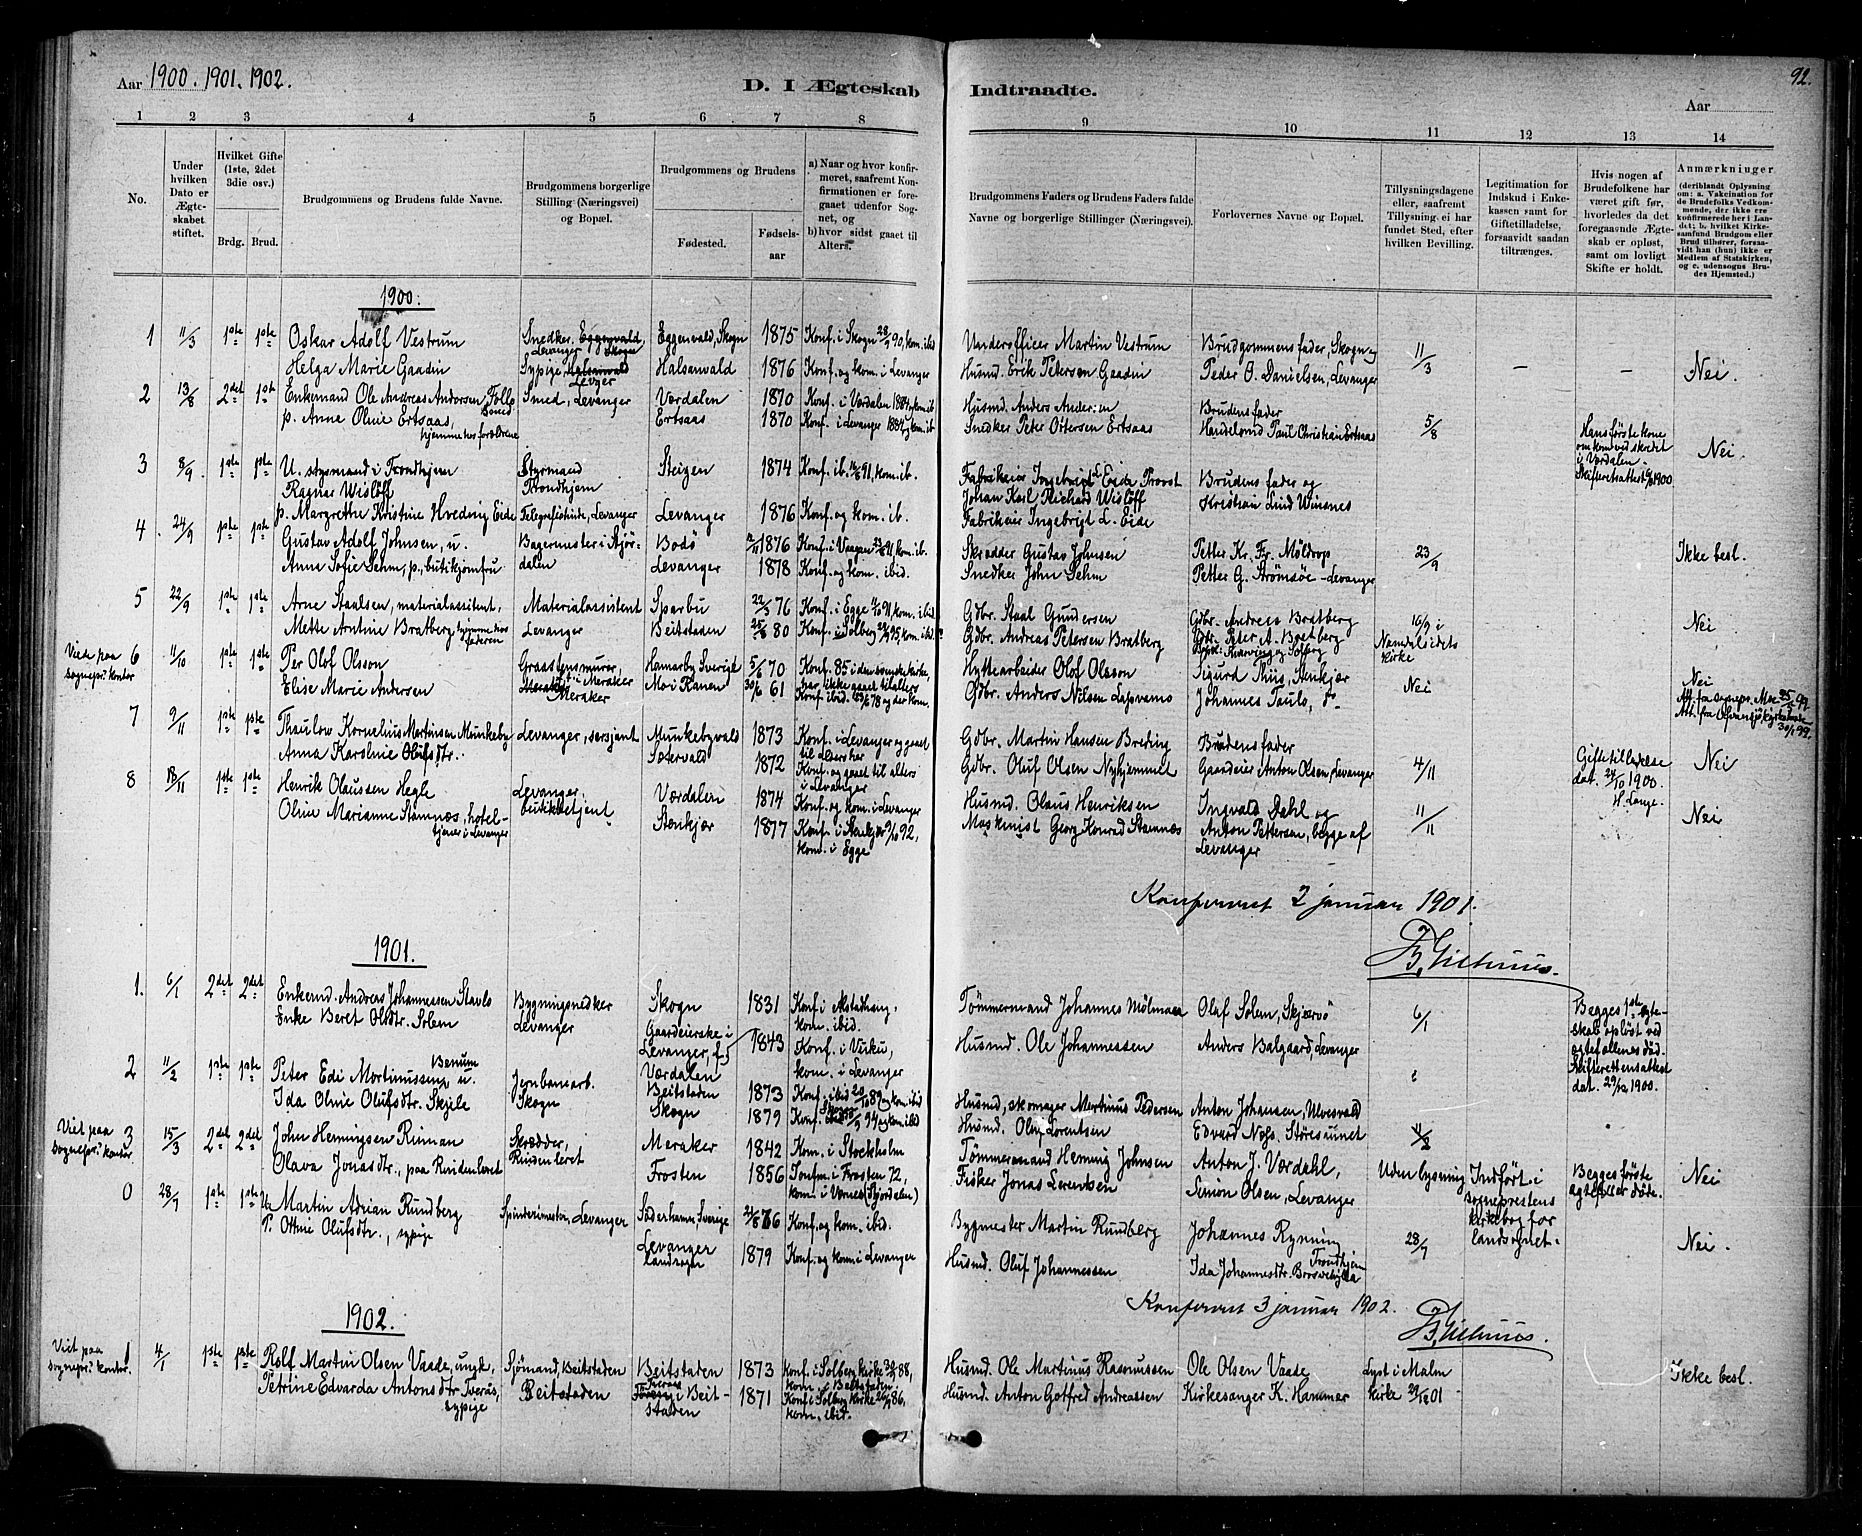 Aar 1900. 1901. 1902.
D. I Ægteskab Indtraadte.
92.
Aar
1 2 3 4 5 6 7 8 9 10 11 12 13 14
No.
Under hvilken Dato er Ægteskabet stiftet.
Hvilket Gifte (1ste, 2det 3die osv.)
Brdg. Brud.
Brudgommens og Brudens fulde Navne.
Brudgommens borgerlige Stilling (Næringsvei) og Bopæl.
Brudgommens og Brudens
Fødested.
Fødselsaar
a) Naar og hvor konfirmeret, saafremt Konfirmationen er foregaaet udenfor Sognet, og
b) hvor sidst gaaet til Alters.
Brudgommens Faders og Brudens Faders fulde Navne og borgerlige Stillinger (Næringsvei).
Forlovernes Navne og Bopæl.
Tillysningsdagene eller, saafremt Tillysning ei har fundet Sted, efter hvilken Bevilling.
Legitimation for Indskud i Enkekassen samt for Giftetilladelse, forsaavidt saadan tiltrænges.
Hvis nogen af Brudefolkene har været gift før, hvorledes da det foregaaende Ægteskab er opløst, samt om lovligt Skifte er holdt.
Anmærkninger (deriblandt Oplysning om: a. Vakcination for de Brudefolks Vedkommende, der ikke ere konfirmerede her i Landet; b. hvilket Kirkesamfund Brudgom eller Brud tilhører, forsaavidt han (hun) ikke er Medlem af Statskirken, og c. udensogns Brudes Hjemsted.)
1900.
1 11/3 1ste 1ste Oskar Adolf Vestrum Snedker, Eggenvald, Levanger Skogn Eggenvald, Skogn 1875 Konf. i Skogn 90, kom. ibid Underofficer Martin Vestrum Brudgommens fader, Skogn og 11/3 – – –
Helga Marie Gaadin Sypige, Halsanvald Levger Halsanvald 1876 Konf. og kom. i Levanger Husmd. Erik Petersen Gaadin Peder O. Danielsen, Levanger Nei.
2 13/8 2det 1ste Enkemand Ole Andreas Andersen Follo Smed, Levanger Værdalen 1870 Konf. i Værdalen 1884, kom. ib. Husmd. Anders Andersen Brudens fader 5/8
p. Anne Oline Ertsaas, hjemme hos forældrene Ertsaas 1870 Konf. i Levanger 1884, kom. ib. Snedker Peter Ottersen Ertsaas Handelsmd Paul Christian Ertsaas Hans første kone omkom ved skredet i Værdalen. Skifteretsattest 1900 Nei.
3 8/9 1ste 1ste U. styrmand i Trondhjem Styrmand Steigen 1874 Konf. ib. 91, kom. ib. Fabrikeier Ingebrigt L. Eide Provst Brudens fader og
Ragnar Wisløff Trondhjem Johan Karl Richard Wisløff Kristian Lind Winsnes
p. Margrethe Kristine Hveding Eide Telegrafistinde, Levanger Levanger 1876 Konf. og kom. ib. Fabrikeier Ingebrigt L. Eide
4 24/9 1ste 1ste Gustav Adolf Johnsen, u. Bagermester i Stjørdalen Bodø 1876 Konf. i Vaagan 91, kom. ib. Skrædder Gustav Johnsen Petter Kr. Fr. Møldrop 23/9 Ikke besl.
Anna Sofie Sehm, p., butikjomfru Levanger 1878 Konf. og kom. ibid. Snedker John Sehm Petter G. Strømsøe – Levanger
5 22/9 1ste 1ste Arne Staalsen, materialassistent, Materialassistent Sparbu 22/3 76 Konf. i Egge 91, kom. ibid. Gdbr. Staal Gundersen Gdbr. Andreas Bratberg 16/9 i Namdalseidets kirke
Mette Antine Bratberg, hjemme hos faderen Levanger Beitstaden 25/6 80 Konf. i Solberg 95, kom. ibid. Gdbr. Andreas Petersen Bratberg Gdbr. Peter A. Bratberg Nei
Viede paa sognepr. kontor 6 11/10 1ste 1ste Per Olof Olsson Graastensmurer, Meraker Hamarby Sverige 5/6 70 Konf. 85 i den svenske kirke, har ikke gaaet til alters Hyttearbeider Olof Olsson Sigurd Thus, Stenkjær Nei
Elise Marie Andersen Meraker Mo i Ranen 30/6 61 Konf. ibid. 78 og der kom. Gdbr. Anders Nilsen Lapvemo Johannes Taulo, do Nei Att. fra sognepr. Moe 25/5 99.
7 9/11 1ste 1ste Thaulow Kornelius Martinsen Munkeby Levanger, sersjant Munkebyvald 1873 Konf. i Levanger og gaaet til alters her Gdbr. Martin Hansen Breding Brudens fader 4/11
Anna Karoline Olufsdtr. Sætervald 1872 Konf. og gaaet til alters i Levanger Gdbr. Oluf Olsen Nyhjemmet Gaardeier Anton Olsen, Levanger Giftetilladelse dat. 24/10 1900. H. Lange. Nei
8 13/11 1ste 1ste Henrik Olaussen Hegle Levanger, butikbetjent Værdalen 1874 Konf. og kom. i Levanger Husmd. Olaus Henriksen Ingvald Dahl og 11/11
Oline Marianne Stamnæs, hoteltjener i Levanger Stenkjær 1877 Konf. i Stenkjær 92, kom. i Egge Maskinist Georg Konrad Stamnæs Anton Pettersen, begge af Levanger Nei
Konfereret 2 januar 1901.
1901.
1. 6/1 2det 2det Enkemd. Andreas Johannessen Stavlo Bygningsnedker Skogn 1831 Konf. i Alstahaug, kom. ibid. Tømmermand Johannes Mølmaa Olaf Solem, Skjervø 6/1 Begges 1ste ægteskab opløst ved ægtefællenes død. Skifterettensattest dat. 29/12 1900.
Enke Beret Olsdtr. Solem Levanger Gaardeierske i Levanger, f. i Værdalen 1843 Konf. i Vuku, kom. i Levanger Husmd. Ole Johannessen Anders Balgaard, Levanger
2 11/2 1ste 1ste Peter Edi Martinussen Benum u. Jernbanearb. Beitstaden 1873 Konf. ibid 89 og kom. ibid Husmd, skomager Martinus Pedersen Anton Johansen, Ulvesvald
Ida Oline Olufsdtr. Skjele Skogn Skogn 1879 Konf. 94 og kom. ibid Husmd. Oluf Lorentsen Edvard Nøss. Støresunnet 11/2
Viet paa sognepr. kontor 3 15/3 2det 2det John Hemingsen Riiman Skrædder, Meraker 1842 Kom. i Stockholm Tømmermand Heming Johnsen Anton J. Værdahl, Uden lysning Indført i sogneprestens kirkebog for landsognet. Begges første ægtefæller døde. Nei
Olava Jonasdtr., paa Rindenleret Rindenleret Frosten 1856 Konf. i Frosten 72, kom. i Værnes (Stjørdalen) Fisker Jonas Lorentsen Simon Olsen, Levanger
0 28/7 1ste 1ste U. Martin Adrian Rundberg Spinderimester, Levanger Søderhamn, Sverige 76 Konf. og kom. ibid. Bygmester Martin Rundberg Johannes Ryning Trondhjem 28/7 Nei.
P. Ottine Olufsdtr., sypige Levanger landsogn 1879 Konf. og kom. i Levanger Husmd. Oluf Johannessen Ida Johannesdtr.
Konfereret 3 januar 1902.
1902.
Viet paa sognepr. kontor. 1 4/1 1ste 1ste Rolf Martin Olsen Vaade, ungk., Sjømand, Beitstaden Beitstaden 1873 Konf. i Solberg kirke 88, kom. i Beitstaden Husmd. Ole Martinus Rasmussen Ole Olsen Vaade Lyst i Malm Ikke besl.
Petrine Edvarda Antonsdtr Tveraas, sypige Beitstaden Tveraas i Beitstaden 1871 Konf. i Solberg kirke 86, kom. ibid. Husmd. Anton Gotfred Andreassen Kirkesanger K. Hammer kirke 29/12 01